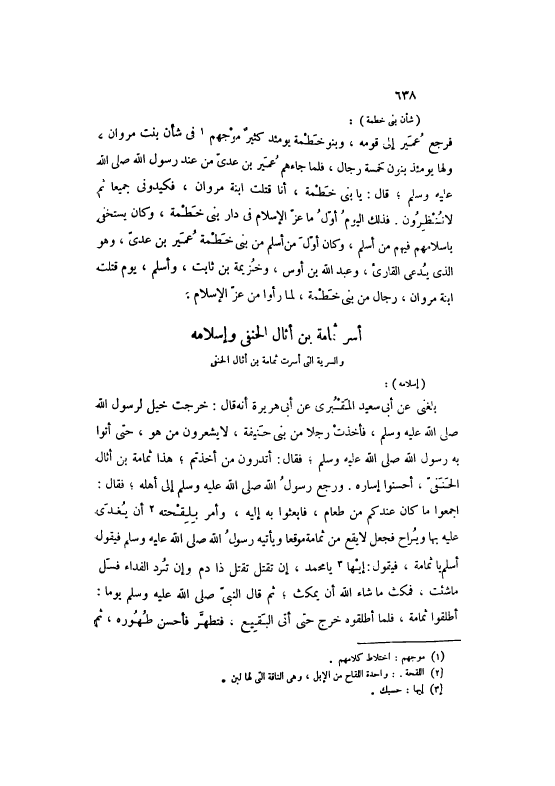 ٦٣٨
( شأن بنى خطمة ) :
فرجع عُمَير إلى قومه ، وبنو خَطْمة يومئذ كثيرٌ موْجهم ١ فى شأن بنت مروان ،
ولها يومئذ بنون خمسة رجال ، فلما جاءهم عُمَير بن عدىّ من عند رسول الله صلى الله
عليه وسلم ؛ قال : يا بنى خَطْمة ، أنا قتلت ابنة مروان ، فكيدونى جميعا ثم
لا تُنْظِرُون . فذلك اليومُ أوّلُ ما عزّ الإسلام فى دار بنى خَطْمة ، وكان يستخفى
بإسلامهم فيهم من أسلم ، وكان أوّلَ من أسلم من بنى خَطْمة عُمَير بن عدىّ ، وهو
الذى يُدعى القارئ ، وعبد الله بن أوس ، وخُزيمة بن ثابت ، وأسلم ، يوم قتلت
ابنة مروان ، رجال من بنى خَطْمة ، لما رأوا من عزّ الإسلام .
أسر ثمامة بن أثال الحنفى وإسلامه
والسرية التى أسرت ثمامة بن أثال الحنفى
( إسلامه ) :
بلغنى عن أبى سعيد المَقْبُرى عن أبى هريرة أنه قال : خرجت خيل لرسول الله
صلى الله عليه وسلم ، فأخذتْ رجلا من بنى حَنيفة ، لا يشعرون من هو ، حتى أتوا
به رسول الله صلى الله عليه وسلم ؛ فقال : أتدرون من أخذتم ؛ هذا ثمامة بن أثال
الحَنَفىّ ، أحسنوا إساره . ورجع رسولُ الله صلى الله عليه وسلم إلى أهله ؛ فقال :
اجمعوا ما كان عندكم من طعام ، فابعثوا به إليه ، وأمر بلِقْحته ٢ أن يُغدَى
عليه بها ويُراح فجعل لا يقع من ثمامة موقعا ويأتيه رسولُ الله صلى الله عليه وسلم فيقول
أسلم يا ثمامة ، فيقول : إيْها ٣ يا محمد ، إن تقتل تقتل ذا دم وإن تُرد الفداء فسَل
ما شئت ، فمكث ما شاء الله أن يمكث ؛ ثم قال النبىّ صلى الله عليه وسلم يوما :
أطلقوا ثمامة ، فلما أطلقوه خرج حتى أتى البَقيع ، فتطهَّر فأحسن طُهُوره ، ثم
(١) موجهم : اختلاط كلامهم .
(٢) اللقحة . : واحدة اللقاح من الإبل ، وهى الناقة التى لها لبن .
(٣) إيها : حسبك .